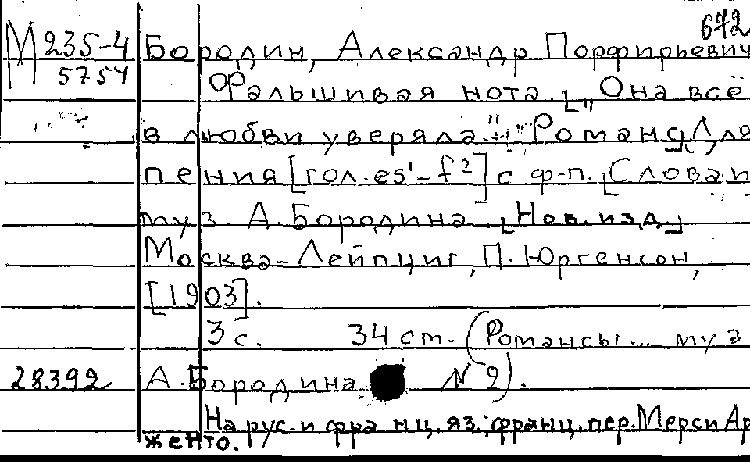 672
М 235-4 Бородин, Александр Порфирьевич
5754 Фальшивая нота. [„Она всё
в любви уверяла..."] Романс. Для
пения [гол. es'-f²] с ф-п. [Слова и
муз. А. Бородина. [Нов. изд.]
Москва-Лейпциг, П. Юргенсон,
[1903].
3 с. 34 ст. (Романсы... муз
28392 А. Бородина № 2).
На рус. и франц. яз.; франц. пер. Мерси Ар
женто.